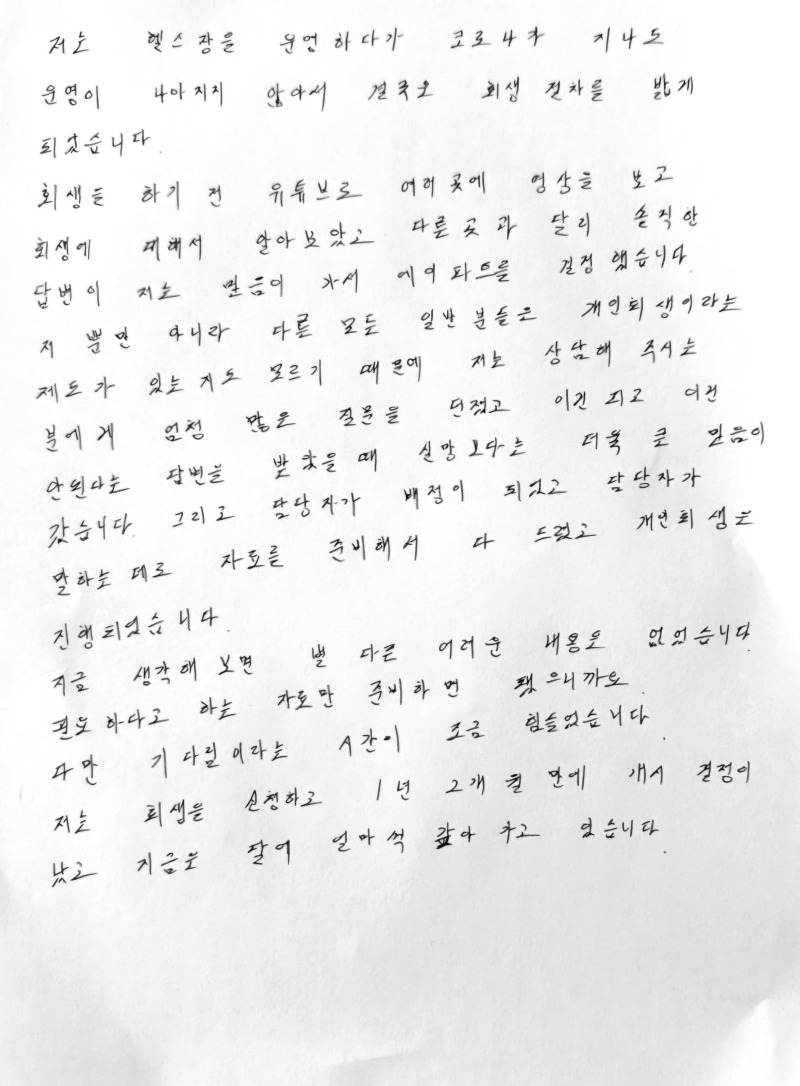 저는 헬스장을 운영하다가 코로나가 지나도
운영이 나아지지 않아서 결국은 회생 절차를 밟게
되었습니다.
회생을 하기 전 유튜브로 여러곳에 영상을 보고
회생에 대해서 알아보았고 다른곳과 달리 솔직한
답변이 저는 믿음이 가서 에이파트를 결정했습니다.
저 뿐만 아니라 다른 모든 일반분들은 개인회생이라는
제도가 있는지도 모르기 때문에 저는 상담해 주시는
분에게 엄청 많은 질문을 던졌고 이건 되고 이건
안된다는 답변을 받았을때 실망보다는 더욱 큰 믿음이
갔습니다. 그리고 담당자가 배정이 되었고 담당자가
말하는데로 자료를 준비해서 다 드렸고 개인회생은
진행되었습니다.
지금 생각해보면 별 다른 어려운 내용은 없었습니다.
필요하다고 하는 자료만 준비하면 됐으니까요.
다만 기다림이라는 시간이 조금 힘들었습니다.
저는 회생을 신청하고 1년 2개월 만에 개시 결정이
났고 지금은 달에 얼마씩 갚아 가고 있습니다.